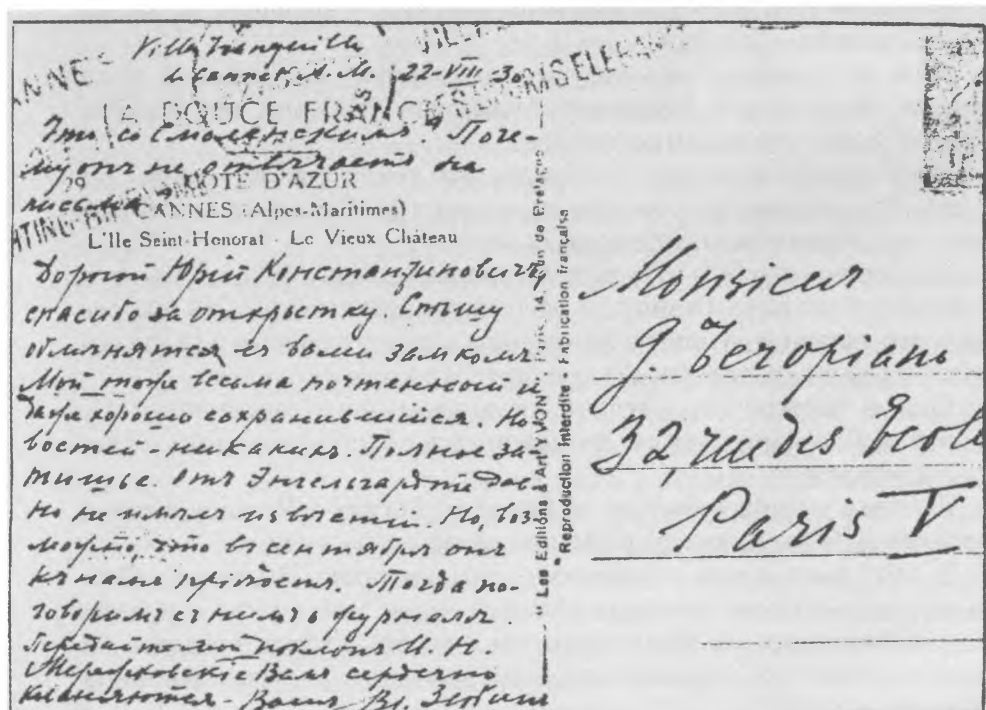 Villa Tranquille
Le Cannet A. M. 22-VIII-30
LA DOUCE FRANCE
Что со Смоленскимъ. Поче-
му онъ не отвѣчаетъ на
письма
29 CÔTE D'AZUR
CANNES (Alpes-Maritimes)
L'Ile Saint-Honorat - Le Vieux Château
Дорогой Юрій Константиновичъ,
спасибо за открытку. Спѣшу
обмѣняться съ вами замкомъ.
Мой тоже весьма почтенный и
даже хорошо сохранившійся. Но-
востей - никакихъ. Полное за-
тишье. Отъ Энгельгардта дав-
но не имѣлъ извѣстій. Но, воз-
можно, что въ сентябрѣ онъ
къ намъ пріѣдетъ. Тогда по-
говоримъ съ нимъ о журналѣ.
Передайте мой поклонъ И. Н.
Мережковскіе Вамъ сердечно
кланяются - Вашъ Вл. Злобинъ
Les Editions d'Art "YVON"
Reproduction Interdite - Fabrication française
Monsieur
G. Terapiano
32, rue des Ecoles
Paris V